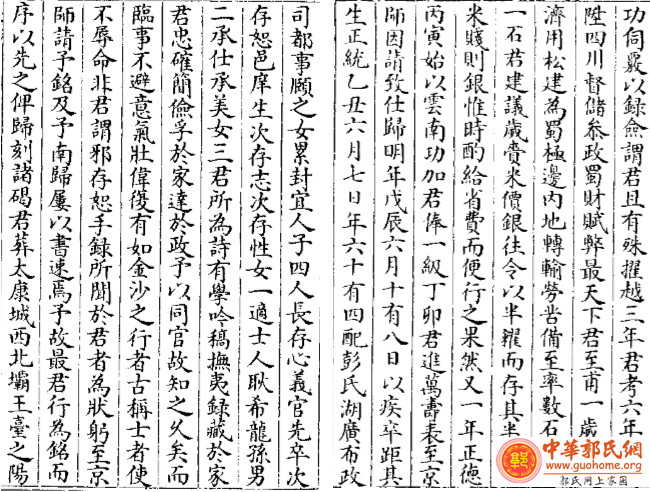 功伺覈以録僉謂君且有殊擢越三年君考六年
陞四川督儲叅政蜀財賦弊最天下君至甫一歳
濟用松建為蜀極邊内地轉輸勞苦備至率數石
一石君建議歳賫米價銀往令以半糴而存其半
米賤則銀惟時酌給省費而便行之果然又一年正德
丙寅始以雲南功加君俸一級丁卯君進萬壽表至京
師因請致仕歸明年戊辰六月十有八日以疾卒距其
生正統乙丑六月七日年六十有四配彭氏湖廣布政
司都事願之女累封宜人子四人長存心義官先卒次
存恕邑庠生次存志次存性女一適士人耿希龍孫男
二承仕承美女三君所為詩有學吟稿撫夷録藏於家
君忠確簡儉孚於家達於政予以同官故知之乆矣而
臨事不避意氣壯偉復有如金沙之行者古稱士者使
不辱命非君謂邪存恕手録所聞於君者為狀躬至京
師請予銘及予南歸屢以書速焉予故最君行為銘而
序以先之俾歸刻諸碣君葬太康城西北壩王臺之陽
中華郭氏網
www.guohome.org
郭氏网上家园